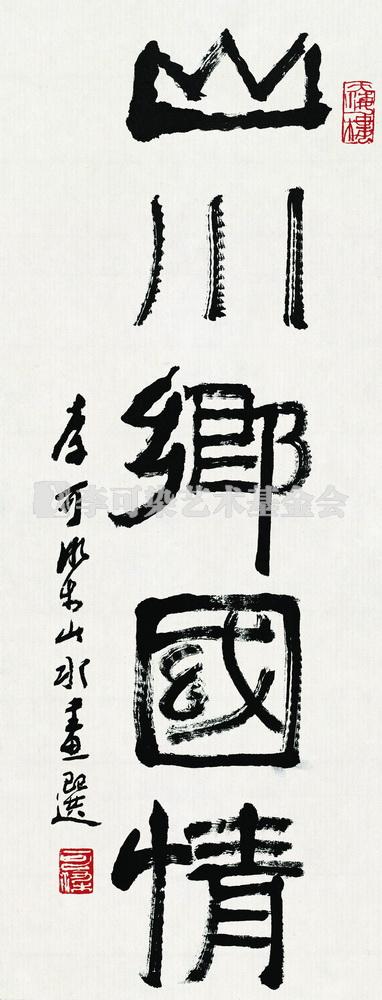 山川鄉國情
李可染山水畫選
李可染艺术基金会
可染